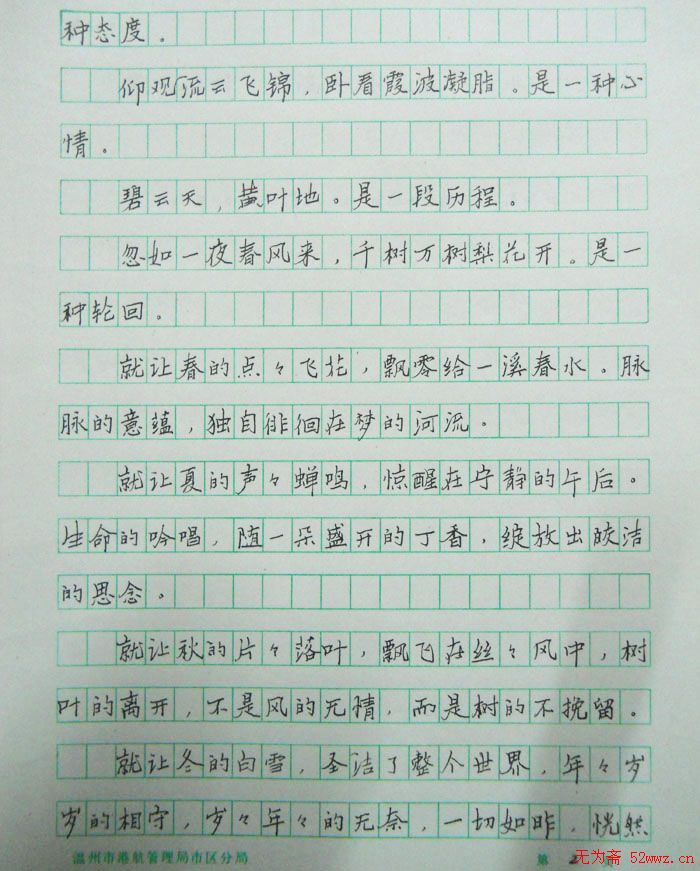 种态度。
仰观流云飞锦，卧看霞波凝脂。是一种心
情。
碧云天，黄叶地。是一段历程。
忽如一夜春风来，千树万树梨花开。是一
种轮回。
就让春的点々飞花，飘零给一溪春水。脉
脉的意蕴，独自徘徊在梦的河流。
就让夏的声々蝉鸣，惊醒在宁静的午后。
生命的吟唱，随一朵盛开的丁香，绽放出皎洁
的思念。
就让秋的片々落叶，飘飞在丝々风中，树
叶的离开，不是风的无情，而是树的不挽留。
就让冬的白雪，圣洁了整个世界，年々岁
岁的相守，岁々年々的无奈，一切如昨，恍然
温州市港航管理局市区分局 第 页
无为斋 52wwz.cn